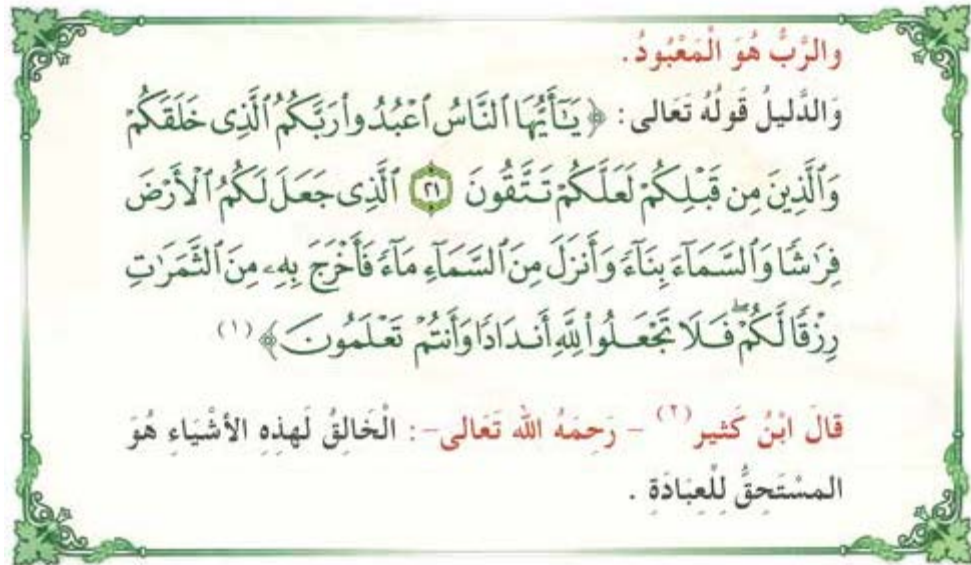 والرَّبُّ هُوَ الْمَعْبُودُ.
وَالدَّلِيلُ قَوْلُهُ تَعَالى: ﴿يَـٰٓأَيُّهَا ٱلنَّاسُ ٱعْبُدُوا۟ رَبَّكُمُ ٱلَّذِى خَلَقَكُمْ
وَٱلَّذِينَ مِن قَبْلِكُمْ لَعَلَّكُمْ تَتَّقُونَ ٢١ ٱلَّذِى جَعَلَ لَكُمُ ٱلْأَرْضَ
فِرَٰشًا وَٱلسَّمَآءَ بِنَآءً وَأَنزَلَ مِنَ ٱلسَّمَآءِ مَآءً فَأَخْرَجَ بِهِۦ مِنَ ٱلثَّمَرَٰتِ
رِزْقًا لَّكُمْ ۖ فَلَا تَجْعَلُوا۟ لِلَّهِ أَندَادًا وَأَنتُمْ تَعْلَمُونَ﴾ (١)
قالَ ابْنُ كَثير (٢) - رَحِمَهُ الله تَعَالى-: الْخَالِقُ لَهذِهِ الأشْيَاءِ هُوَ
المسْتَحِقُّ لِلْعِبَادَةِ .